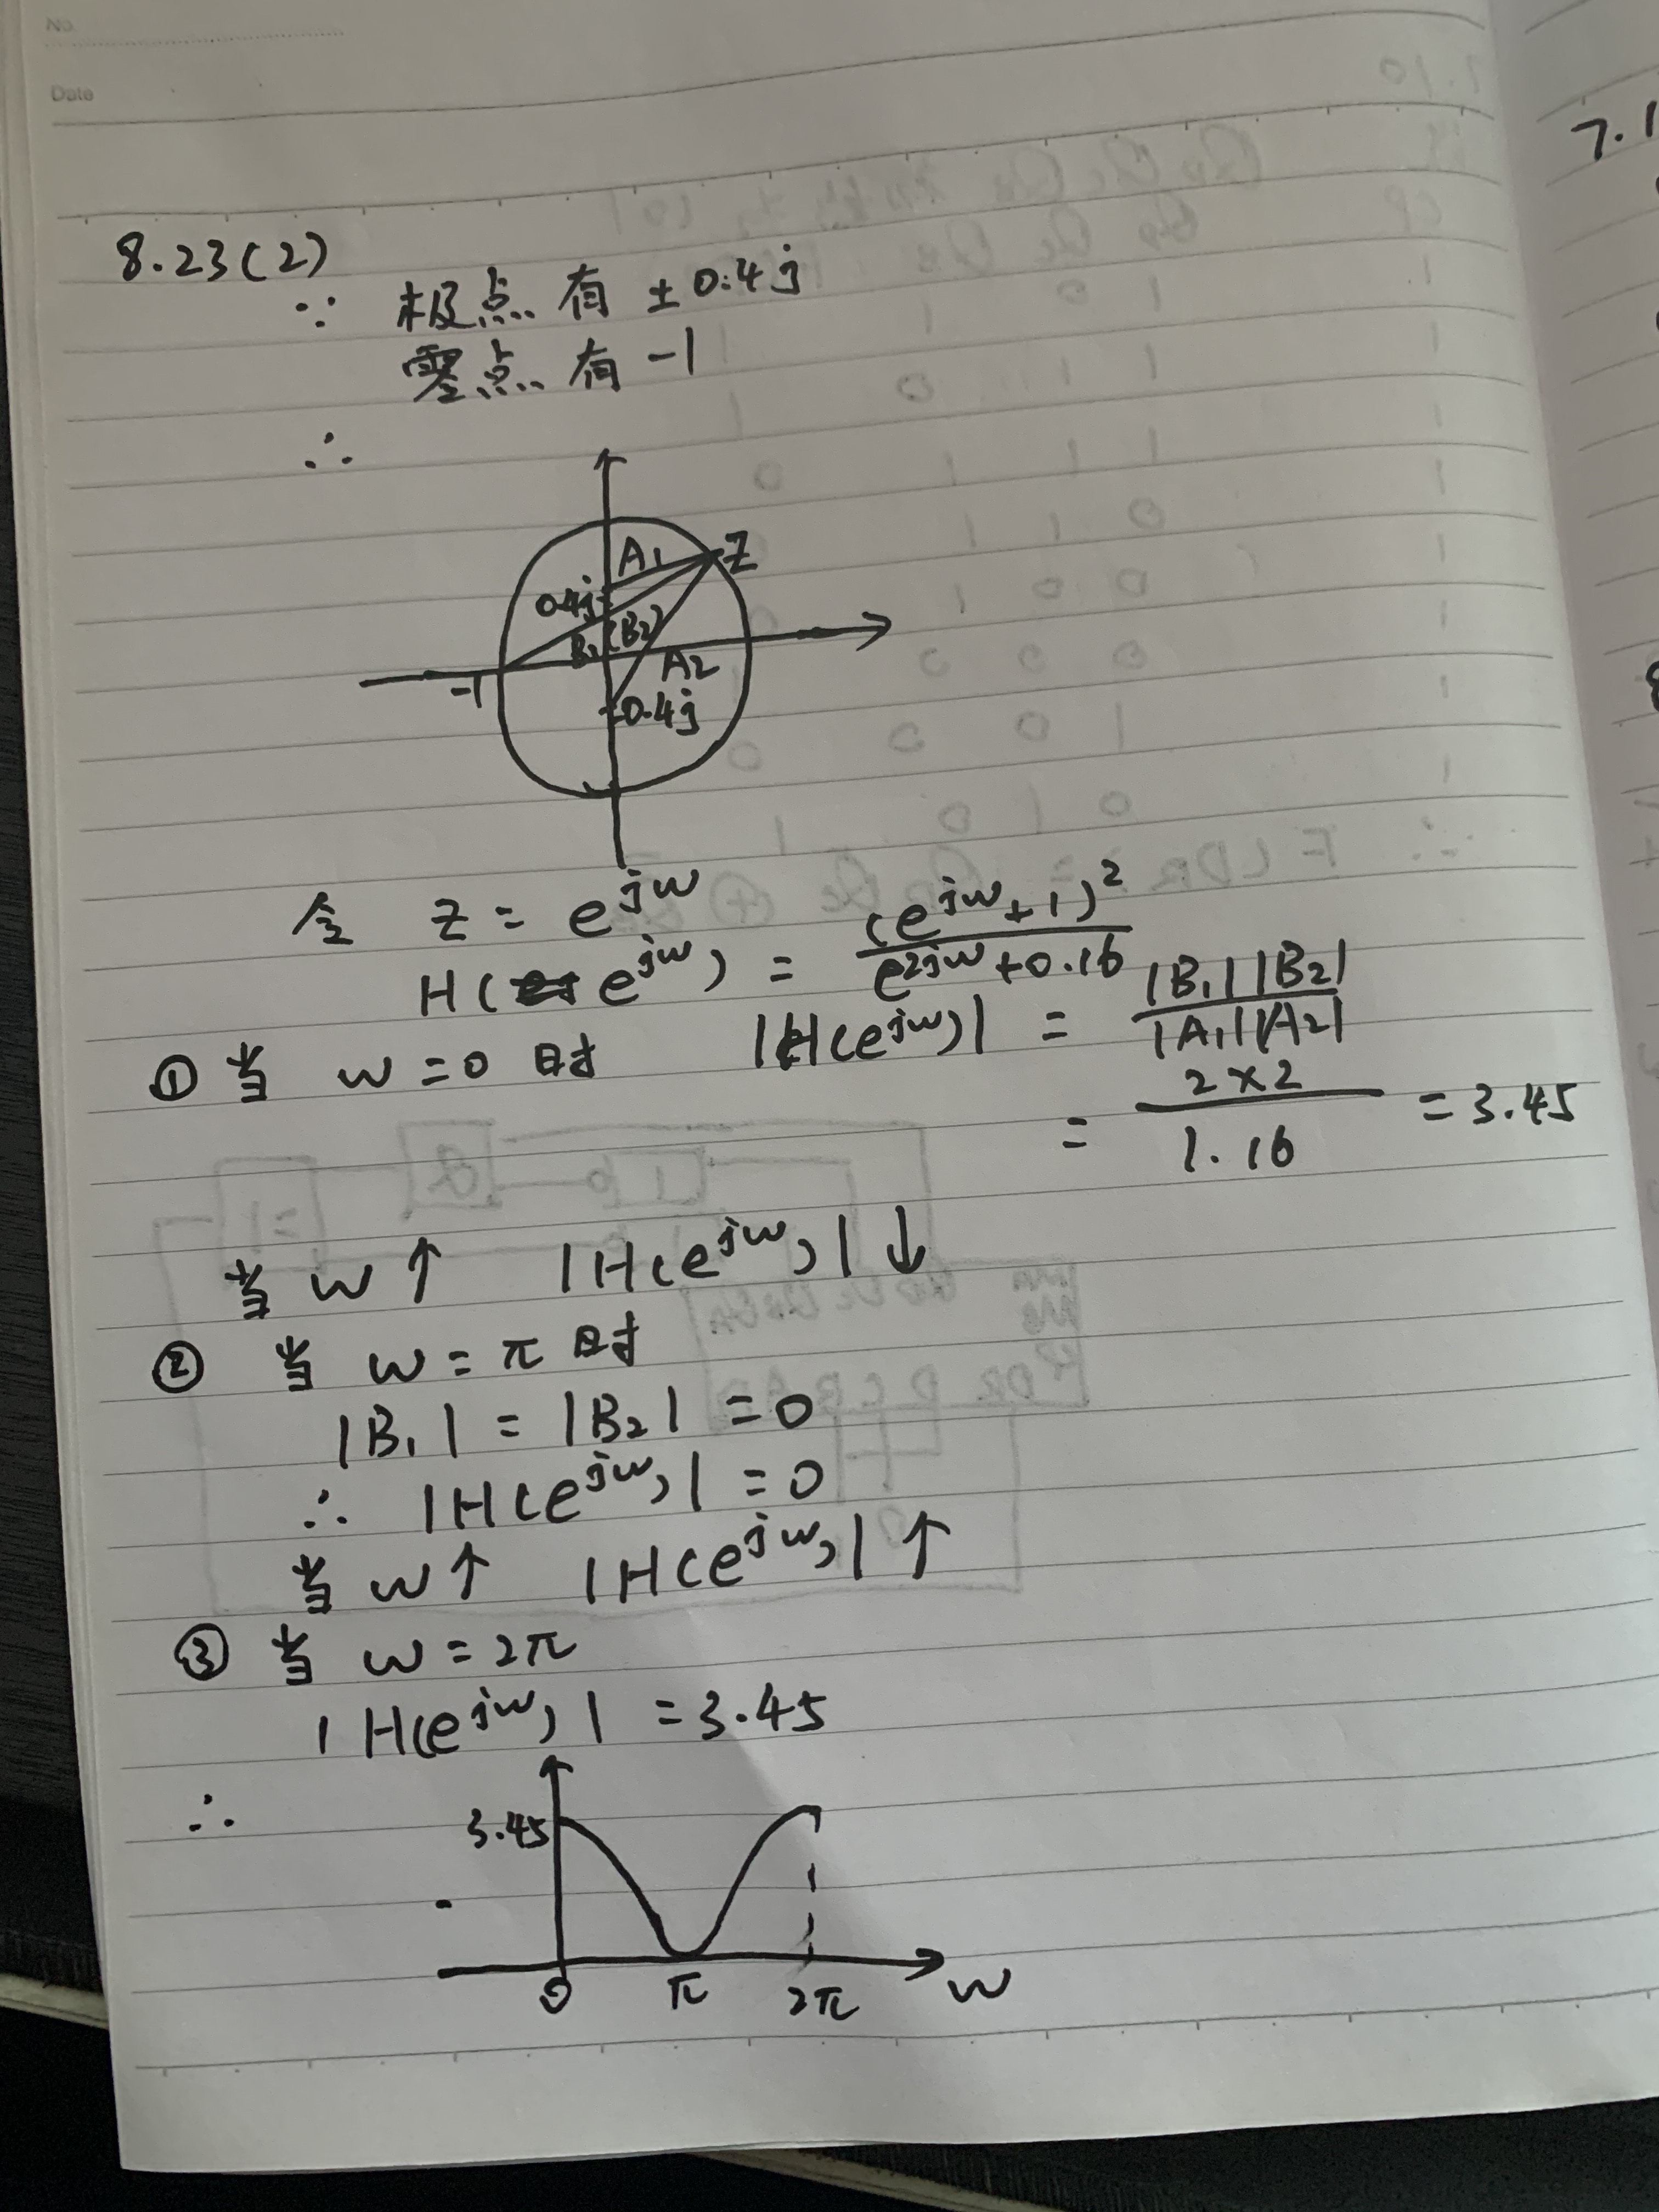 No.
Date
7.1
8.23(2)
∵ 极点有 ±0.4j
零点有 -1
∴
A₁ Z
0.4j
B₁(B₂)
-1 A₂
-0.4j
令 Z = e^{jω}
H(e^{jω}) = (e^{jω}+1)² / (e^{2jω}+0.16)
① 当 ω=0 时 |H(e^{jω})| = |B₁||B₂| / |A₁||A₂|
= 2×2 / 1.16 = 3.45
当 ω↑ |H(e^{jω})|↓
② 当 ω=π 时
|B₁| = |B₂| = 0
∴ |H(e^{jω})| = 0
当 ω↑ |H(e^{jω})|↑
③ 当 ω=2π
|H(e^{jω})| = 3.45
∴
3.45
0 π 2π ω